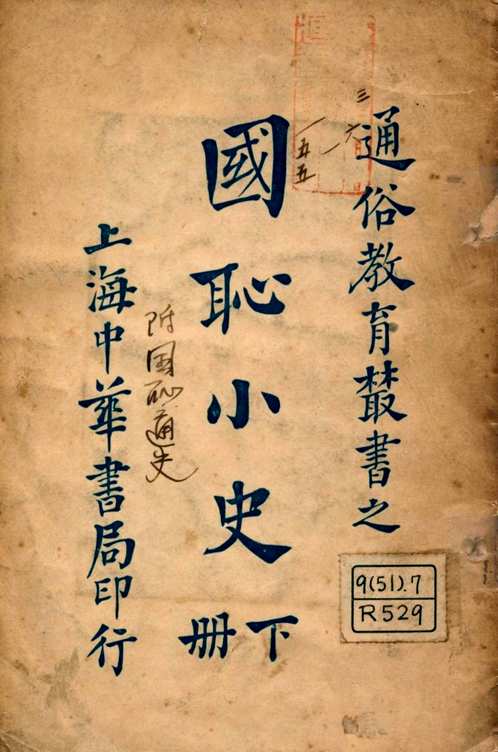 通俗教育叢書之
國恥小史
下册
附国恥通史
上海中華書局印行
三
六一
一五五
9(51).7
R529